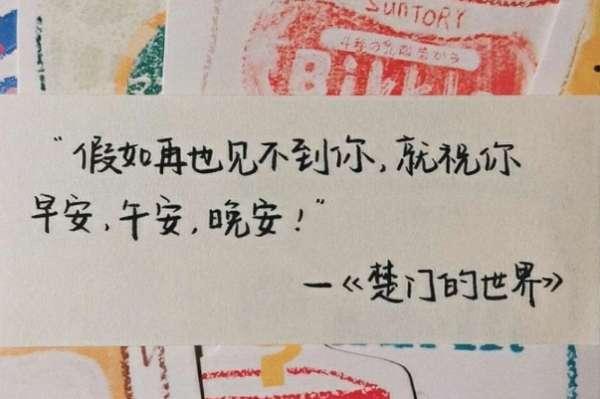 SUNTORY
Bikkle
“假如再也见不到你,就祝你
早安,午安,晚安!”
—《楚门的世界》